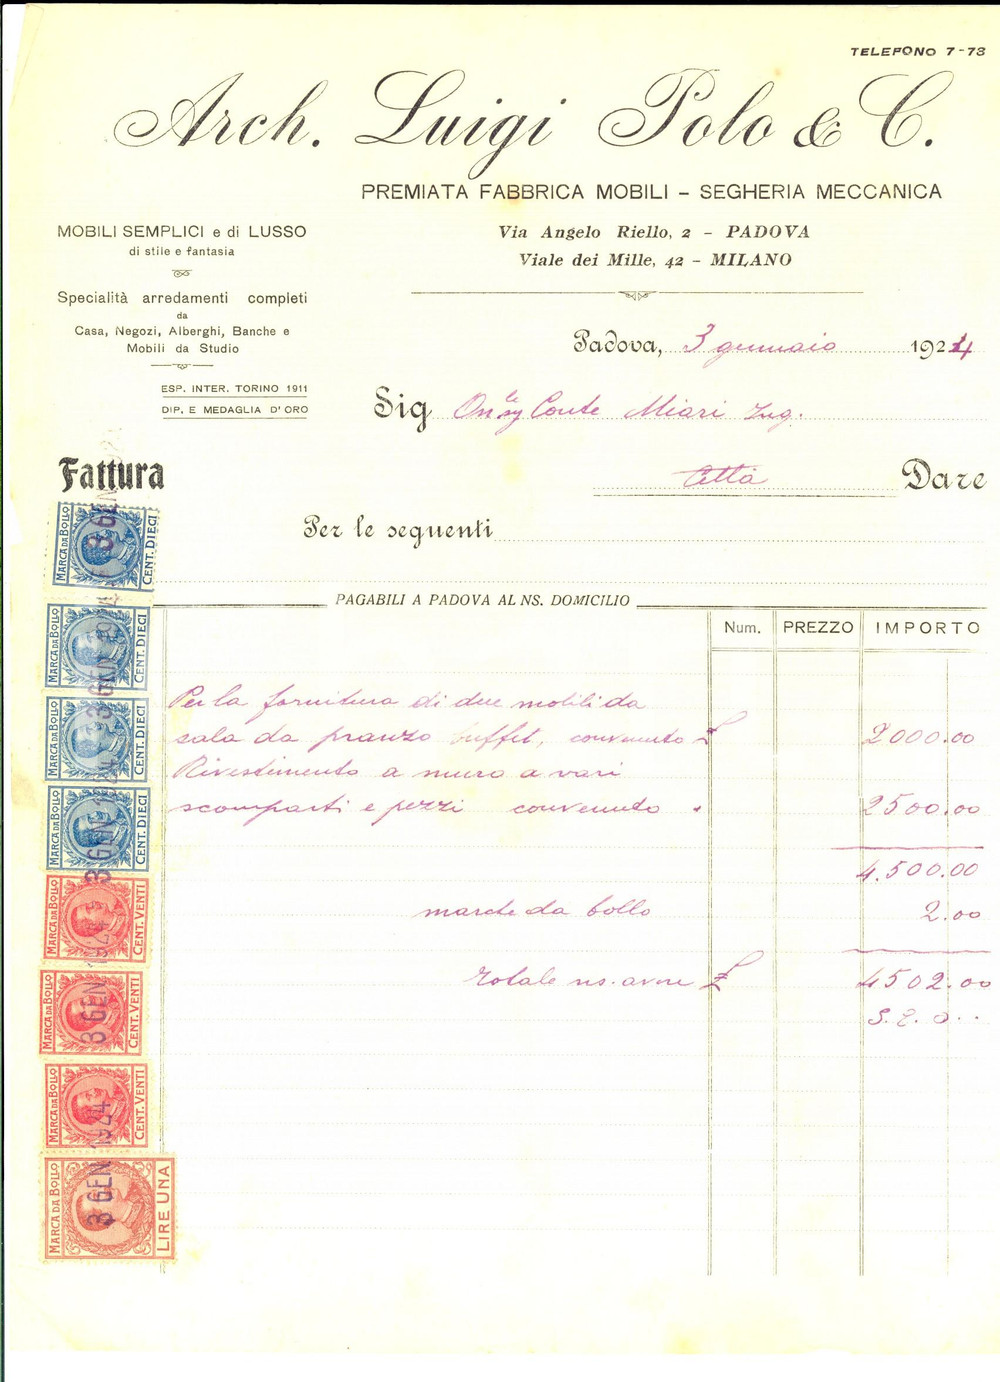 TELEFONO 7-73
Arch. Luigi Polo & C.
PREMIATA FABBRICA MOBILI – SEGHERIA MECCANICA
MOBILI SEMPLICI e di LUSSO
di stile e fantasia
Specialità arredamenti completi
da
Casa, Negozi, Alberghi, Banche e
Mobili da Studio
ESP. INTER. TORINO 1911
DIP. E MEDAGLIA D'ORO
Via Angelo Riello, 2 – PADOVA
Viale dei Mille, 42 – MILANO
Padova, 3 gennaio 1924
Sig On.le Conte Miari Ing.
Città Dare
Fattura
Per le seguenti
PAGABILI A PADOVA AL NS. DOMICILIO
Num. PREZZO IMPORTO
Per la fornitura di due mobili da
sala da pranzo buffet, convenuto £ 2000.00
Rivestimento a muro a vari
scomparti e pezzi convenuto " 2500.00
4.500.00
marche da bollo 2.00
Totale ns. avere £ 4502.00
S. E. O..
MARCA DA BOLLO CENT. DIECI
MARCA DA BOLLO CENT. DIECI
MARCA DA BOLLO CENT. DIECI
MARCA DA BOLLO CENT. DIECI
MARCA DA BOLLO CENT. VENTI
MARCA DA BOLLO CENT. VENTI
MARCA DA BOLLO CENT. VENTI
MARCA DA BOLLO LIRE UNA
3 GEN 1924
3 GEN 1924
3 GEN 1924
3 GEN 1924